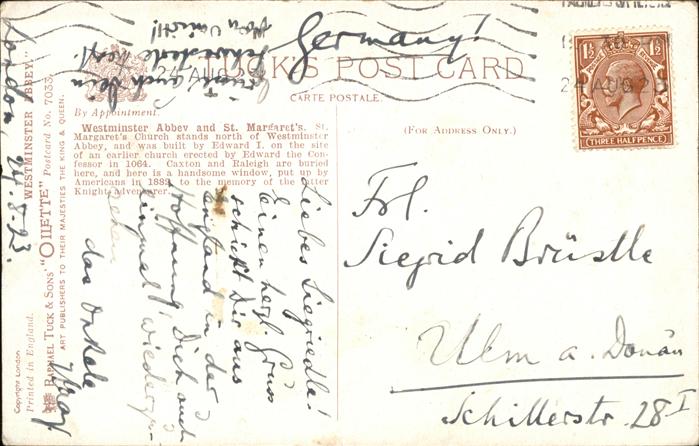 Germany!
TUCK'S POST CARD
CARTE POSTALE.
(FOR ADDRESS ONLY.)
24 AUG 23
1½ 1½
24 AUG 23
THREE HALFPENCE
By Appointment.
Westminster Abbey and St. Margaret's. St.
Margaret's Church stands north of Westminster
Abbey, and was built by Edward I. on the site
of an earlier church erected by Edward the Con-
fessor in 1064. Caxton and Raleigh are buried
here, and here is a handsome window, put up by
Americans in 1882, to the memory of the latter
Knight-adventurer.
WESTMINSTER ABBEY.
RAPHAEL TUCK & SONS' "OILETTE" Postcard No. 7033.
ART PUBLISHERS TO THEIR MAJESTIES THE KING & QUEEN.
Printed in England.
Copyright London
London, 24.8.23.
Liebes Siegriedle!
Einen herzl. Gruss
schickt Dir aus
England in der
Hoffnung Dich auch
einmal wiederzu-
sehen
das Onkele
Frl.
Siegrid Brüstle
Ulm a. Donau
Schillerstr. 28 I